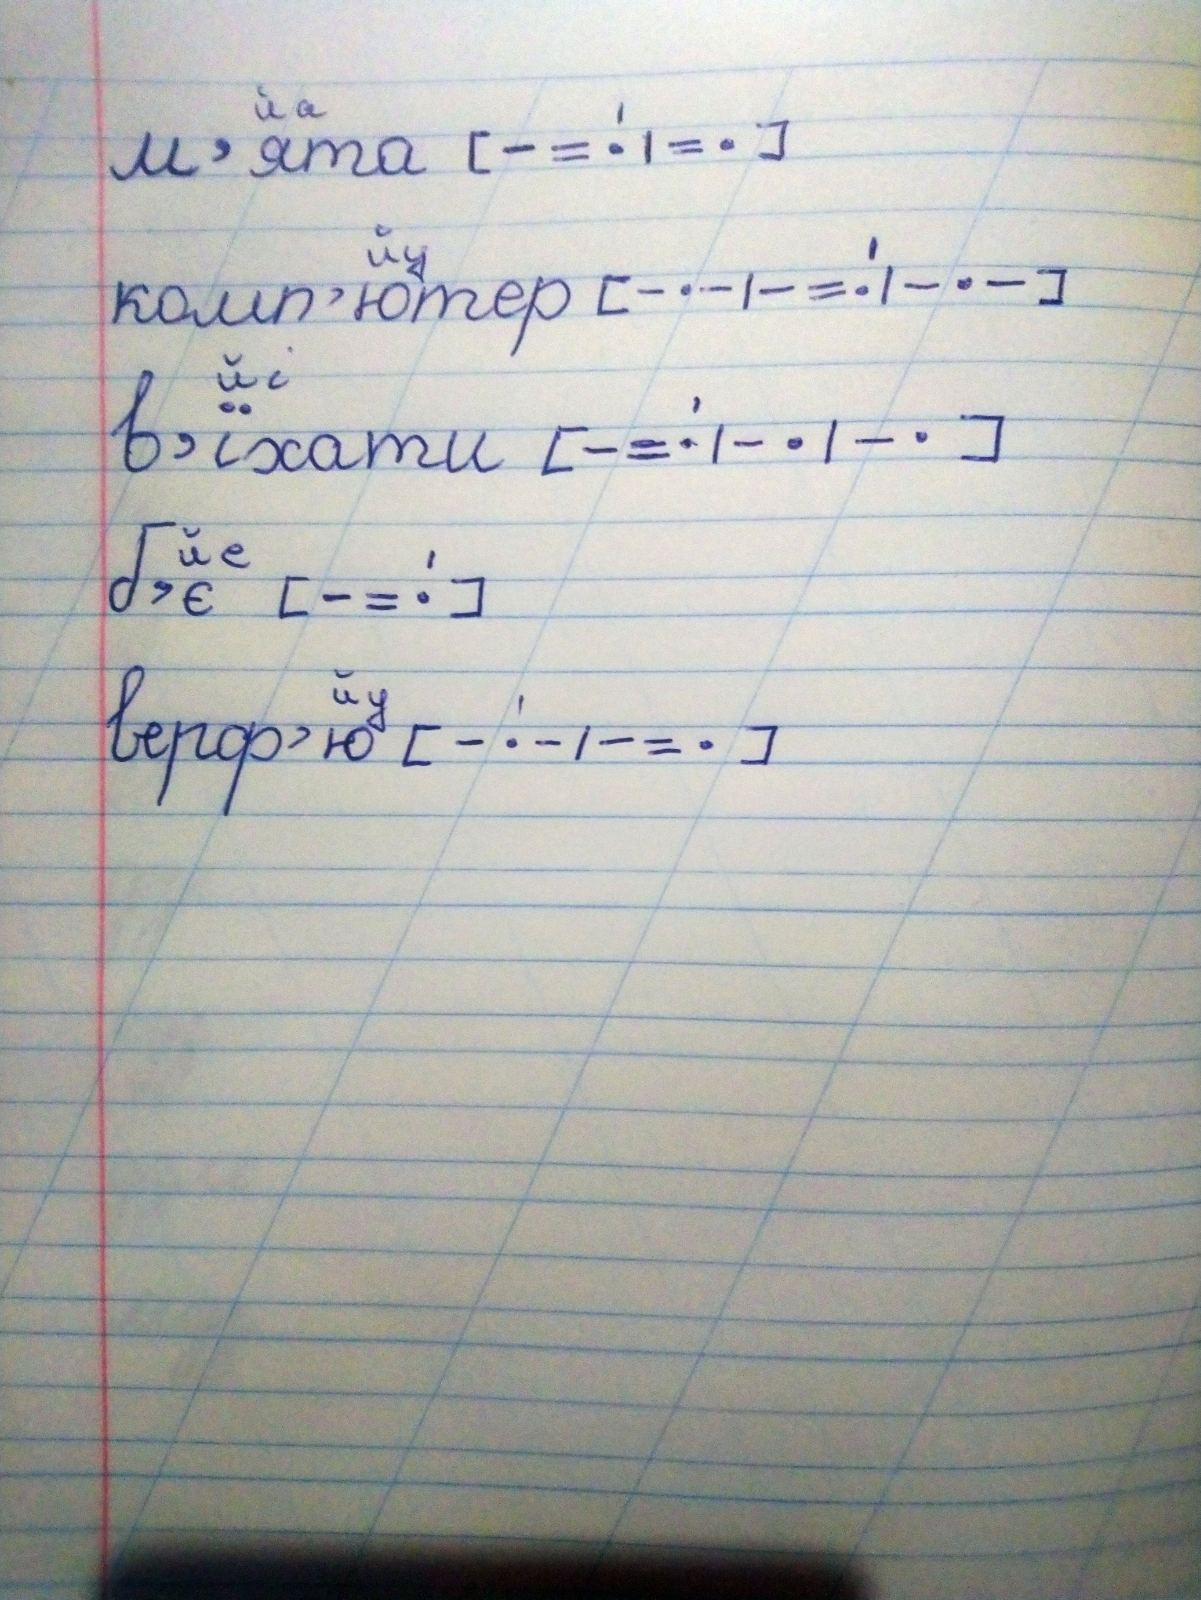 йа
м'ята [– = •́ | = •]
йу
комп'ютер [– • – | – = •́ | – • –]
йі
в'їхати [– = •́ | – • | – •]
йе
б'є [– = •́]
йу
верф'ю [– •́ – | – = •]